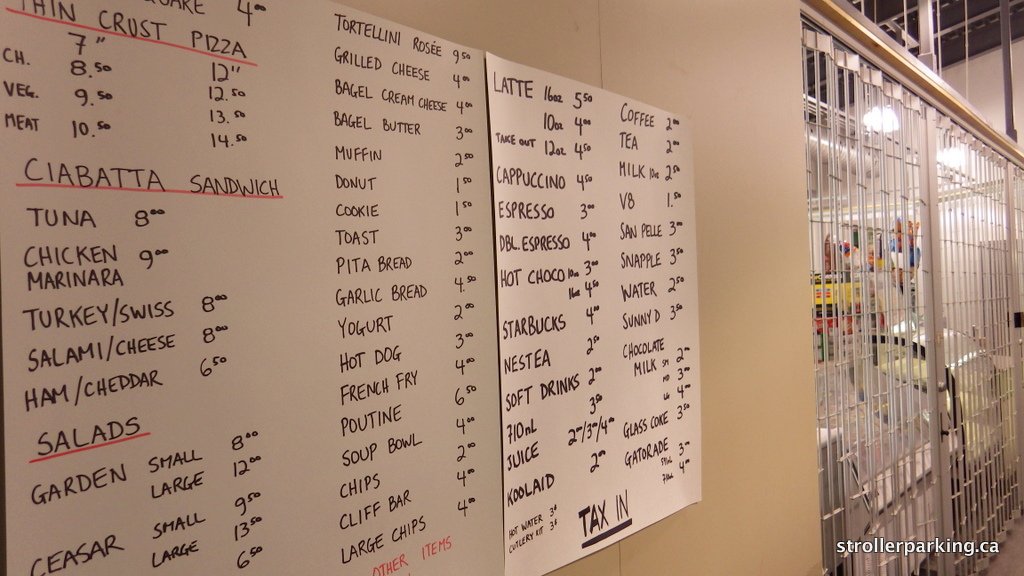 4.00
THIN CRUST PIZZA
7" 12"
CH. 8.50 12.50
VEG. 9.50 13.50
MEAT 10.50 14.50
CIABATTA SANDWICH
TUNA 8.00
CHICKEN MARINARA 9.00
TURKEY/SWISS 8.00
SALAMI/CHEESE 8.00
HAM/CHEDDAR 6.50
SALADS
GARDEN SMALL 8.00
LARGE 12.00
CEASAR SMALL 9.50
LARGE 13.50
6.50
TORTELLINI ROSÉE 9.50
GRILLED CHEESE 4.00
BAGEL CREAM CHEESE 4.00
BAGEL BUTTER 3.00
MUFFIN 2.50
DONUT 1.50
COOKIE 1.50
TOAST 3.00
PITA BREAD 2.00
GARLIC BREAD 4.50
YOGURT 2.00
HOT DOG 3.00
FRENCH FRY 4.00
POUTINE 6.50
SOUP BOWL 4.00
CHIPS 2.00
CLIFF BAR 4.00
LARGE CHIPS 4.00
OTHER ITEMS
LATTE 16oz 5.50
10oz 4.00
TAKE OUT 12oz 4.50
CAPPUCCINO 4.50
ESPRESSO 3.00
DBL. ESPRESSO 4.00
HOT CHOCO 10oz 3.00
16oz 4.50
STARBUCKS 4.00
NESTEA 2.50
SOFT DRINKS 2.00
710mL 3.50
JUICE 2.00/3.00/4.00
KOOLAID 2.00
HOT WATER
CUTLERY KIT
TAX IN
COFFEE 2.00
TEA 2.00
MILK 10oz 2.50
V8 1.50
SAN PELLE 3.00
SNAPPLE 3.50
WATER 2.50
SUNNY D 3.50
CHOCOLATE
MILK SM 2.00
MD 3.00
LG 4.00
GLASS COKE 3.50
GATORADE 3.00
4.00
strollerparking.ca